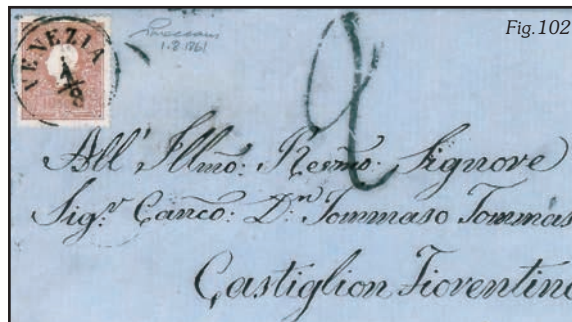 Fig.102
VENEZIA
1/8
1.8.1861
2
All' Illmo: Revmo: Signore
Sig.r Canco: D.n Tommaso Tommas
Castiglion Fiorentino